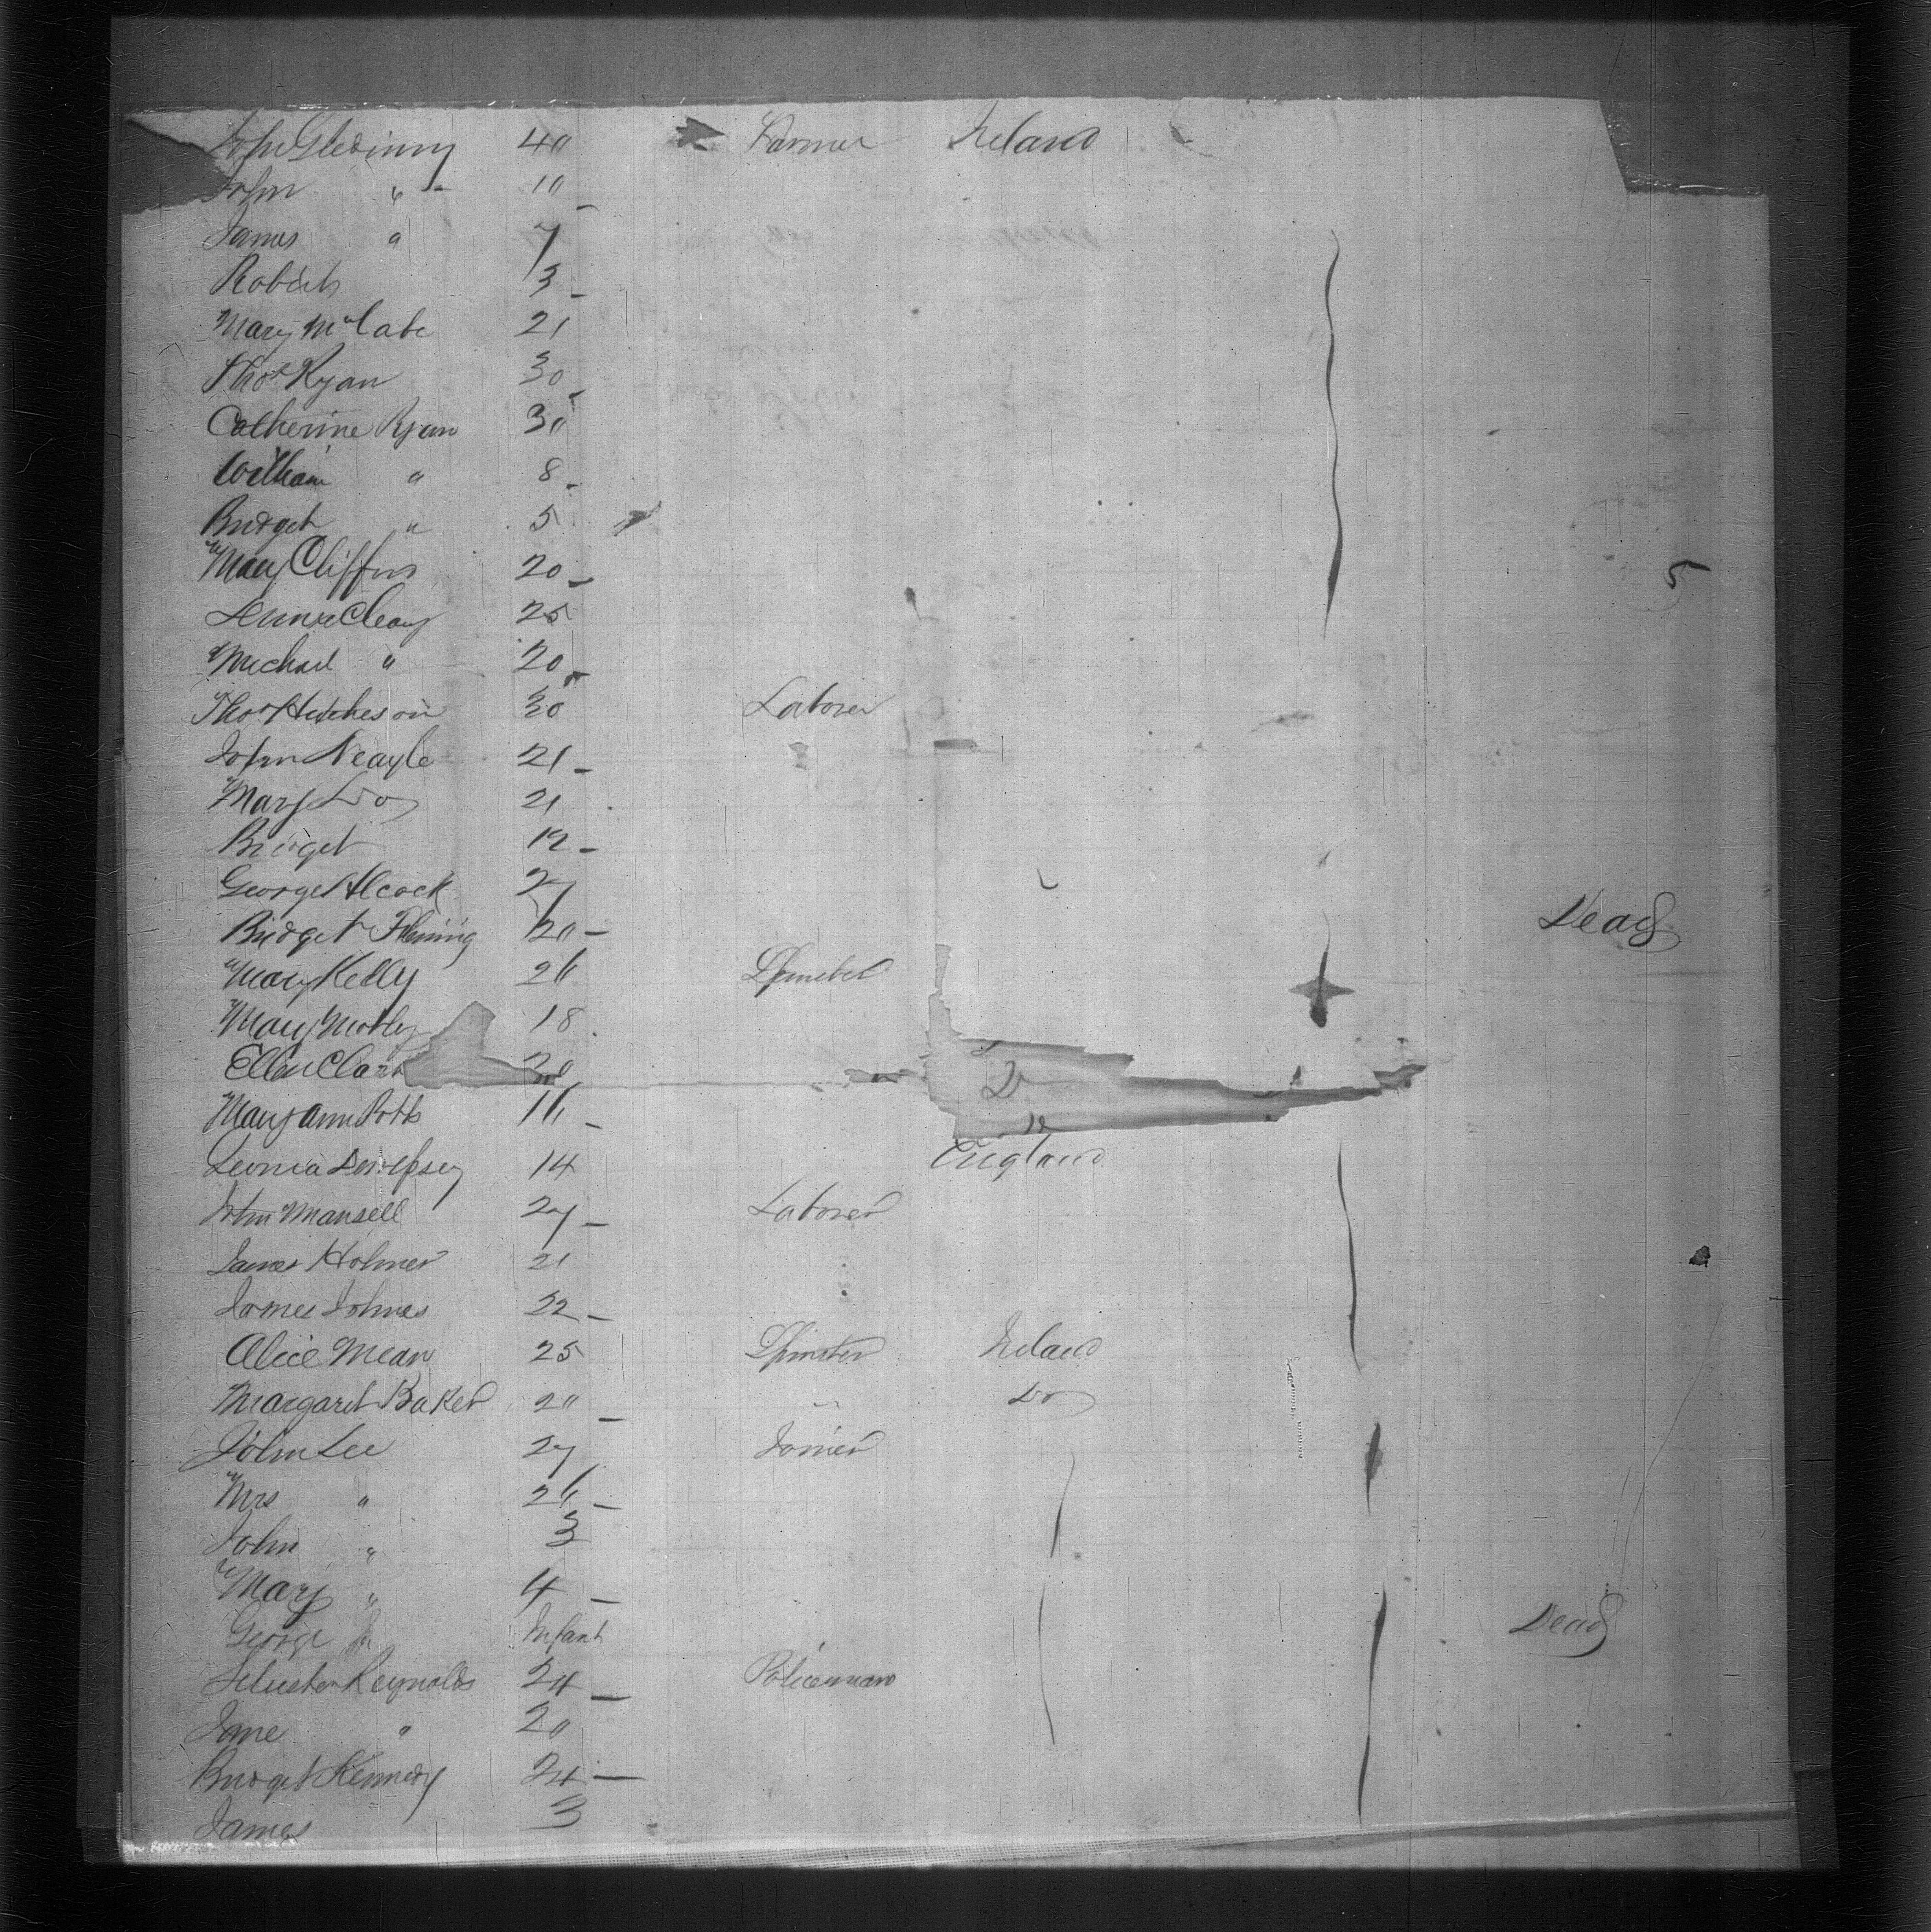 John Gledinny 40 Farmer Ireland
John " 10
James " 7
Robert 3
Mary McCabe 21
Thos Ryan 30
Catherine Ryan 30
William " 8
Bridget " 5
Mary Clifford 20
5
Cleary 25
Michael " 20
Thos Hutcheson 30 Laborer
John Neagle 21
Mary Do 21
Bridget 19
George Alcock 27
Bridget Fleming 20 Dead
Mary Kelly 26 Spinster
Mary 18
Ellen Clark 20
Do
Mary Ann Potts 16
Dempsey 14 England
John Mansell 27 Laborer
James Holmes 21
James Johnes 22
Alice Mean 25 Spinster Ireland
Margaret Baker 20 " Do
John Lee 27 Joiner
Mrs " 26
John " 3
Mary " 4
George Infant Dead
Reynolds 24 Policeman
Jane " 20
Bridget Kennedy 24
James 3